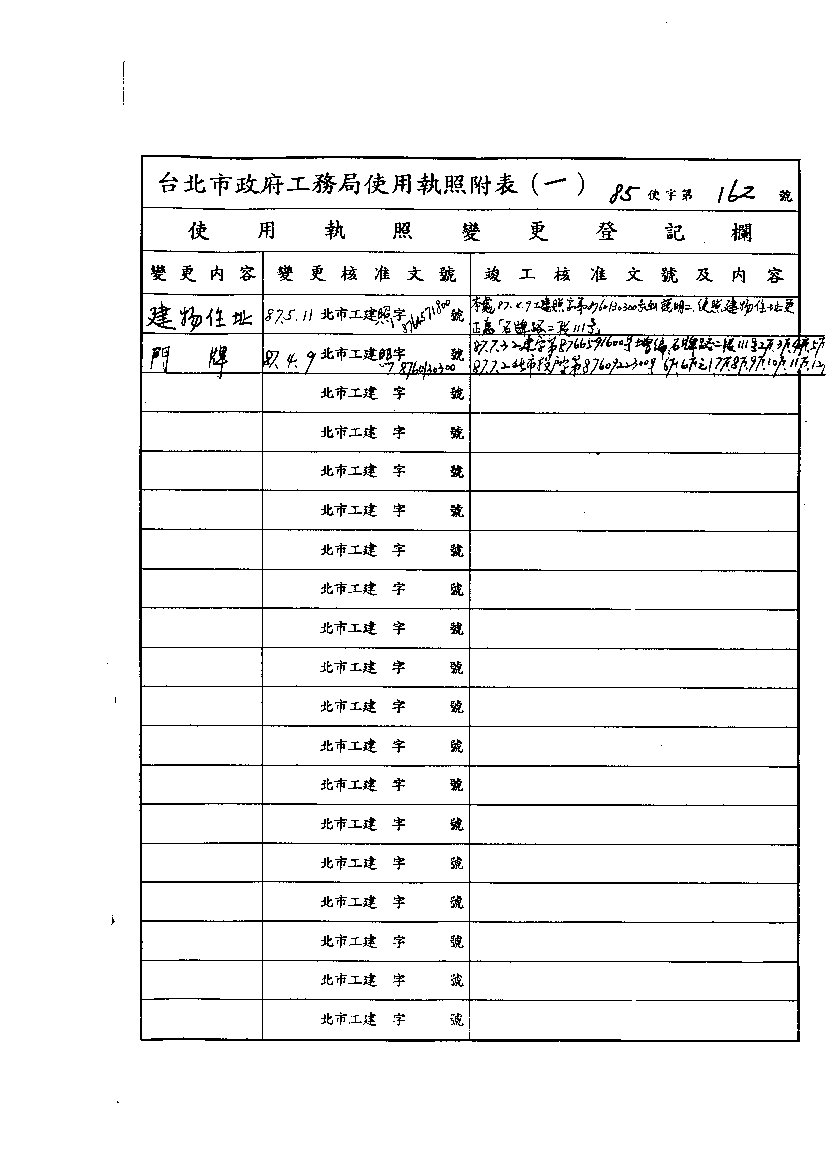 台北市政府工務局使用執照附表（一） 85 使字第 162 號
使用執照變更登記欄
變更內容 變更核准文號 竣工核准文號及內容
建物住址 87.5.11 北市工建照字 8766571800 號 本處87.4.9工建照字第8760130300號函說明二、使照建物住址更
正為「石牌路二段111號
門牌 87.4.9 北市工建照字 8760130300 號 87.7.22建字第8766591600號增編石牌路二段111號2F.3F.4F.5F
87.7.2北市投戶字第8760922300號
北市工建 字 號
北市工建 字 號
北市工建 字 號
北市工建 字 號
北市工建 字 號
北市工建 字 號
北市工建 字 號
北市工建 字 號
北市工建 字 號
北市工建 字 號
北市工建 字 號
北市工建 字 號
北市工建 字 號
北市工建 字 號
北市工建 字 號
北市工建 字 號
北市工建 字 號